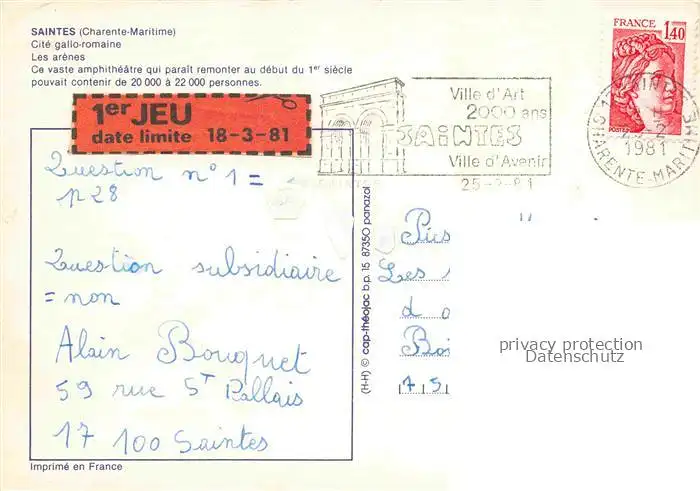 SAINTES (Charente-Maritime)
Cité gallo-romaine
Les arènes
Ce vaste amphithéâtre qui paraît remonter au début du 1er siècle
pouvait contenir de 20 000 à 22 000 personnes.
1er JEU
date limite 18-3-81
Ville d'Art
2000 ans
SAINTES
Ville d'Avenir
25-2-81
FRANCE
1,40
POSTES
1981
CHARENTE-MARITIME
Question n° 1 =
n28
Question subsidiaire
= non
Alain Bouquet
59 rue St Pallais
17 100 Saintes
(H-H) © cap-théojac b.p. 15 87350 panazol
Les
d
75
privacy protection
Datenschutz
Imprimé en France